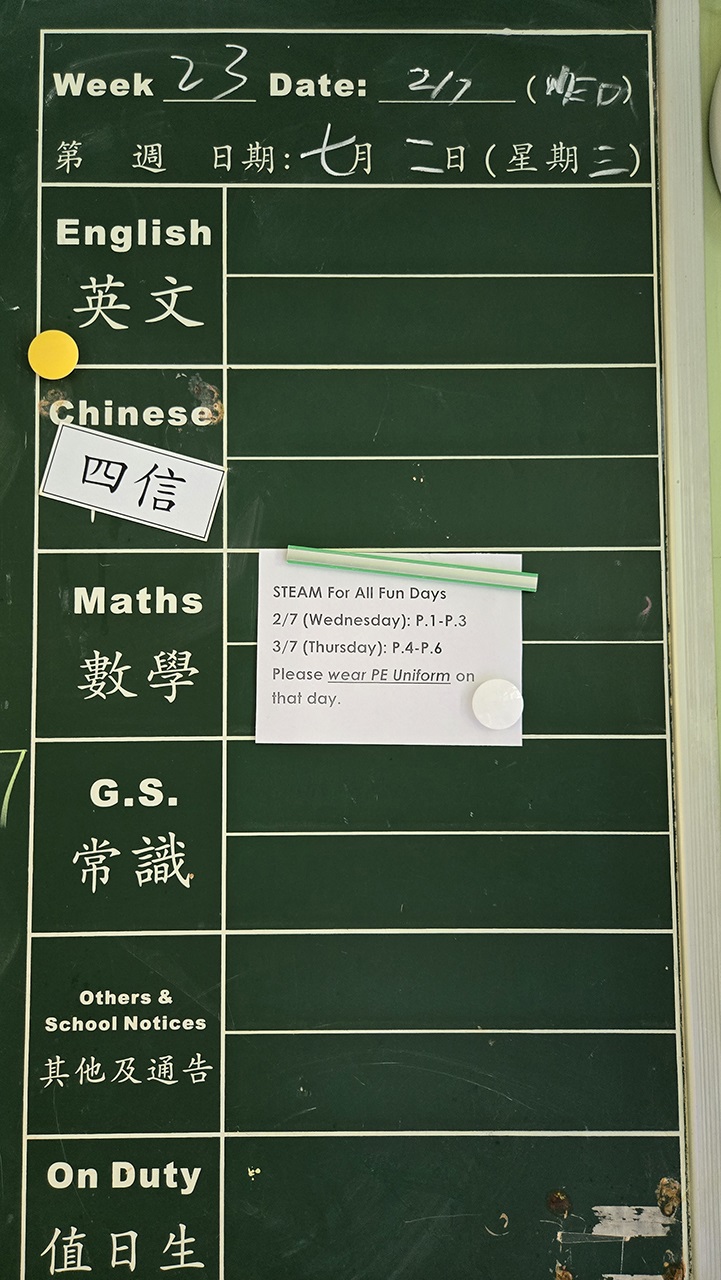 Week 23 Date: 2/7 (WED)
第 週 日期: 七月 二日 (星期三)
English
英文
Chinese
四信
Maths
數學
STEAM For All Fun Days
2/7 (Wednesday): P.1-P.3
3/7 (Thursday): P.4-P.6
Please wear PE Uniform on
that day.
G.S.
常識
Others &
School Notices
其他及通告
On Duty
值日生